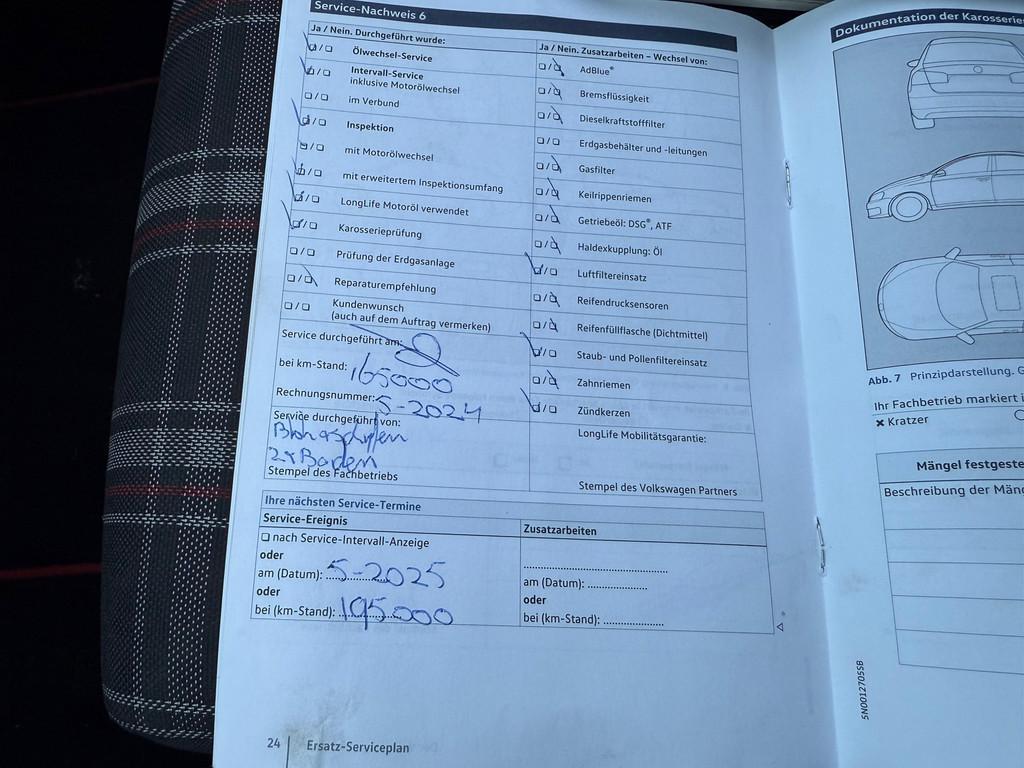 Service-Nachweis 6
Ja / Nein. Durchgeführt wurde:
Ölwechsel-Service
Intervall-Service
inklusive Motorölwechsel
im Verbund
Inspektion
mit Motorölwechsel
mit erweitertem Inspektionsumfang
LongLife Motoröl verwendet
Karosserieprüfung
Prüfung der Erdgasanlage
Reparaturempfehlung
Kundenwunsch
(auch auf dem Auftrag vermerken)
Service durchgeführt am:
bei km-Stand: 165000
Rechnungsnummer: 5-2024
Service durchgeführt von:
Stempel des Fachbetriebs
Ja / Nein. Zusatzarbeiten – Wechsel von:
AdBlue®
Bremsflüssigkeit
Dieselkraftstofffilter
Erdgasbehälter und -leitungen
Gasfilter
Keilrippenriemen
Getriebeöl: DSG®, ATF
Haldexkupplung: Öl
Luftfiltereinsatz
Reifendrucksensoren
Reifenfüllflasche (Dichtmittel)
Staub- und Pollenfiltereinsatz
Zahnriemen
Zündkerzen
LongLife Mobilitätsgarantie:
Stempel des Volkswagen Partners
Ihre nächsten Service-Termine
Service-Ereignis
❏ nach Service-Intervall-Anzeige
oder
am (Datum): 5-2025
oder
bei (km-Stand): 195000
Zusatzarbeiten
am (Datum): ....................
oder
bei (km-Stand): ....................
24 Ersatz-Serviceplan
Dokumentation der Karosserie
Abb. 7 Prinzipdarstellung.
Ihr Fachbetrieb markiert
✖ Kratzer
Mängel festgeste
Beschreibung der Mäng
5N0012705SB